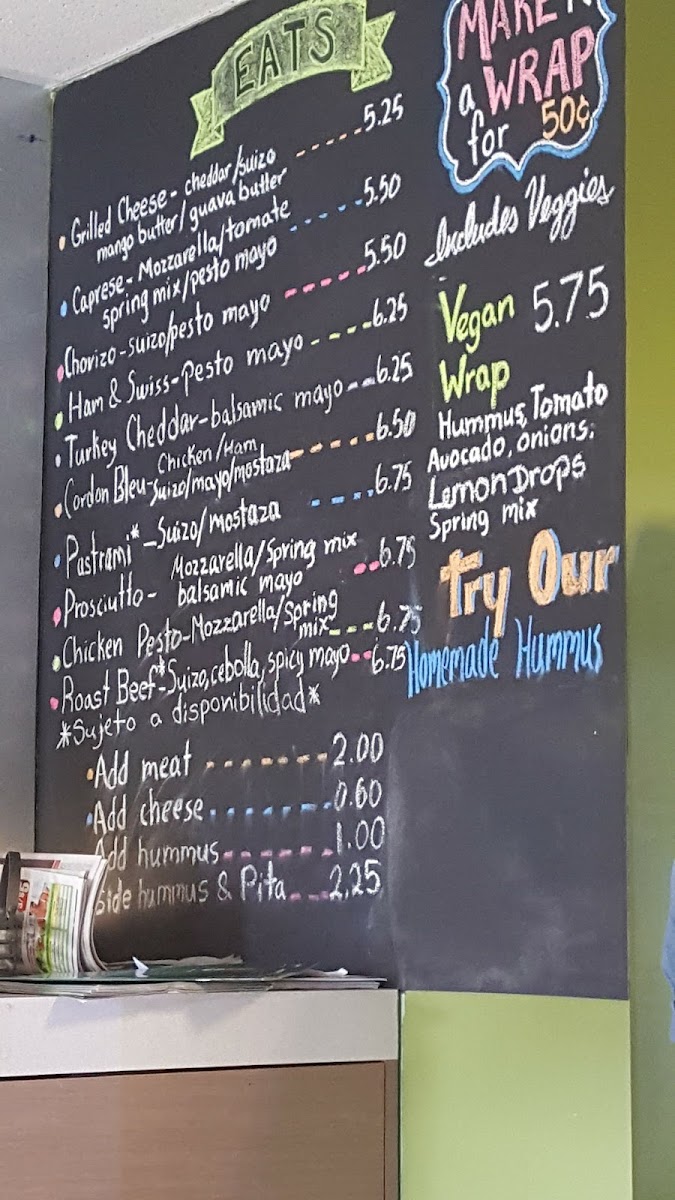 EATS
Grilled Cheese - cheddar/suizo ------ 5.25
mango butter/guava butter
Caprese - Mozzarella/tomate ------ 5.50
spring mix/pesto mayo
Chorizo - suizo/pesto mayo ------ 5.50
Ham & Swiss - Pesto mayo ---- 6.25
Turkey Cheddar - balsamic mayo -- 6.25
Cordon Bleu - Chicken/Ham ------ 6.50
Suizo/mayo/mostaza
Pastrami* - Suizo/Mostaza ---- 6.75
Prosciutto - Mozzarella/Spring mix -- 6.75
balsamic mayo
Chicken Pesto - Mozzarella/Spring
mix --- 6.75
Roast Beef* - Suizo, cebolla, spicy mayo -- 6.75
*Sujeto a disponibilidad*
Add meat -------- 2.00
Add cheese ------- 0.60
Add hummus ------ 1.00
side hummus & Pita --- 2.25
MAKE it
a WRAP
for 50¢
Includes Veggies
Vegan 5.75
Wrap
Hummus, Tomato
Avocado, onions,
Lemon Drops
Spring mix
Try Our
Homemade Hummus